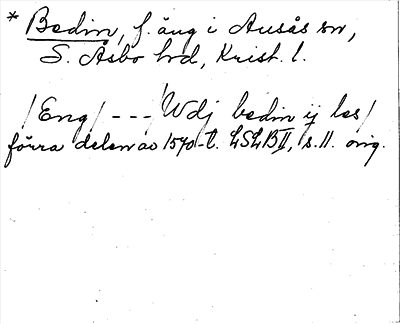 * Bedin, f. äng i Ausås sn,
S. Åsbo hd, Krist. l.
/Eng/ --- /Wdj bedin ij les/
förra delen av 1540-t. LSLB II, s. 11. orig.